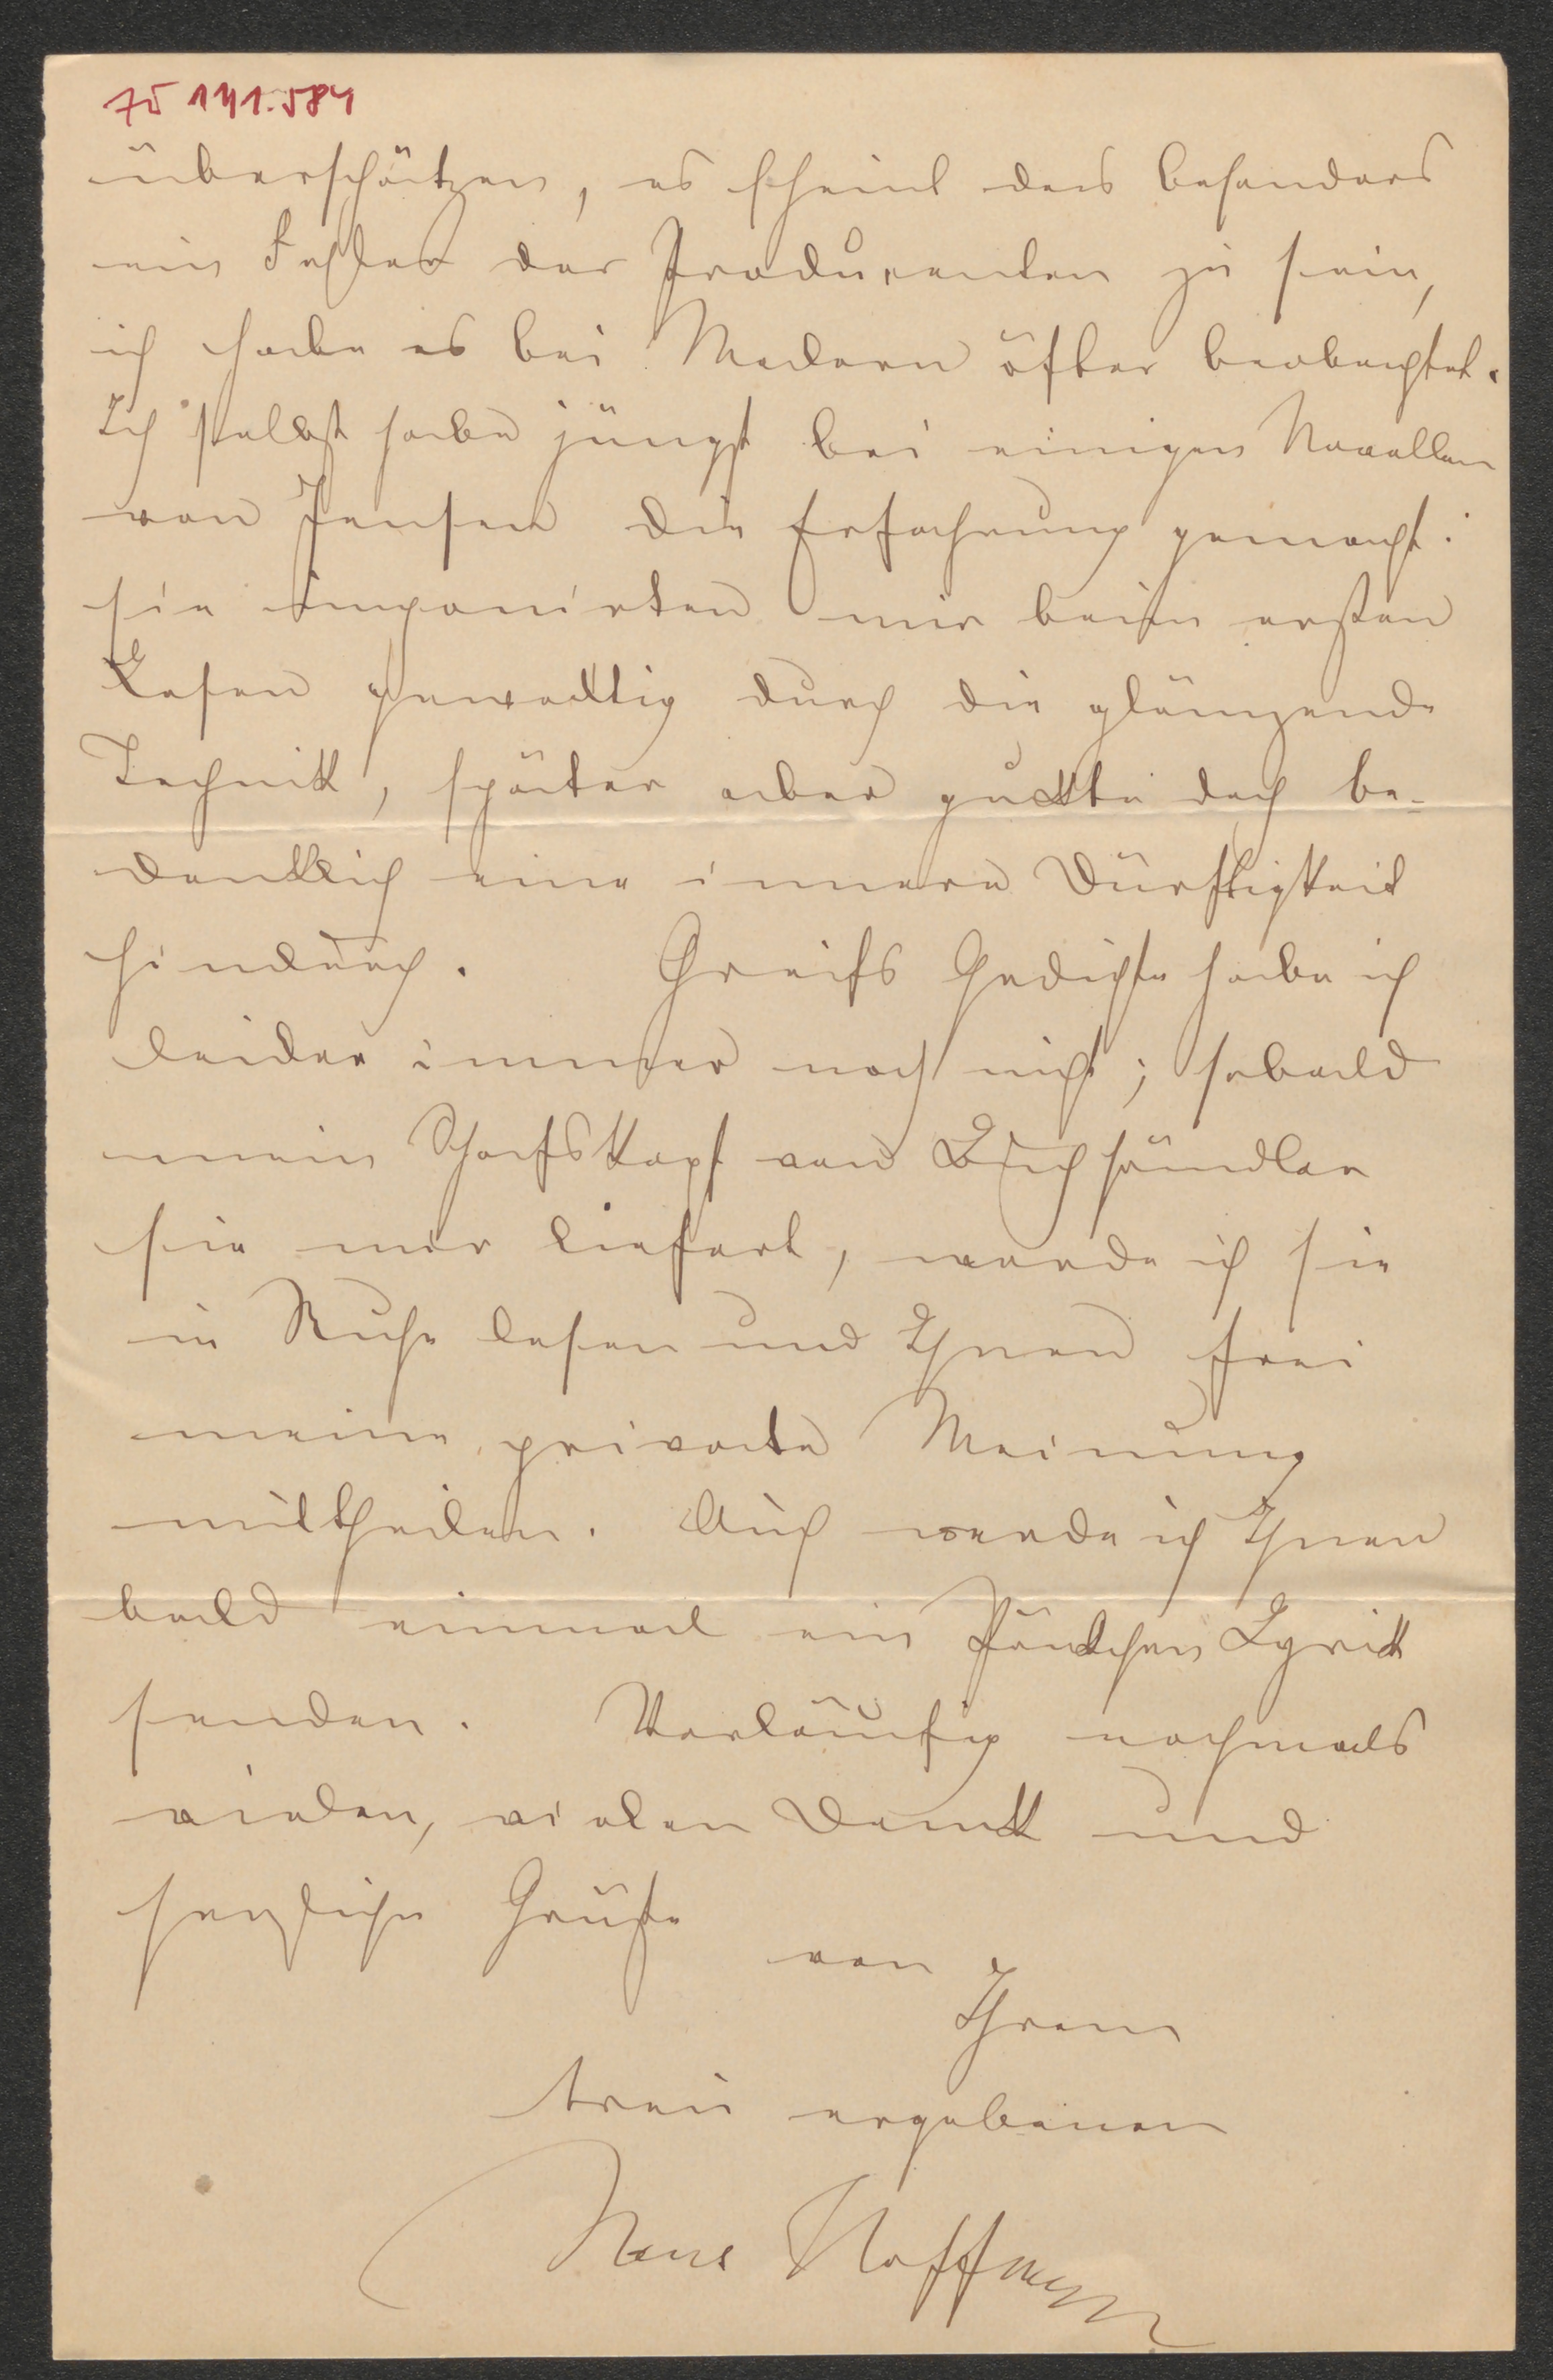 JN 141.584
überschätzen, es scheint das besonders
ein Fehler der Producenten zu sein,
ich habe es bei Andern öfter beobachtet.
Ich selbst habe jüngst bei einigen Novellen
von Jensen die Erfahrung gemacht:
sie imponirten mir beim ersten
Lesen gewaltig durch die glänzende
Technik, später aber guckte doch be-
denklich eine innere Dürftigkeit
hindurch. Greifs Gedichte habe ich
leider immer noch nicht; sobald
mein Schafskopf von Buchhändler
sie mir liefert, werde ich sie
in Ruhe lesen und Ihnen frei
meine private Meinung
mittheilen. Auch werde ich Ihnen
bald einmal ein Päckchen Lyrik
senden. Vorläufig nochmals
vielen, vielen Dank und
herzliche Grüße
von
Ihrem
treu ergebenen
Hans Hoffmann